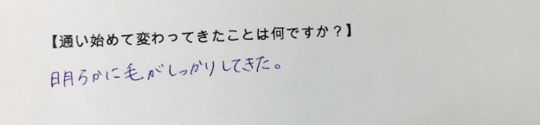 【通い始めて変わってきたことは何ですか？】
明らかに毛がしっかりしてきた。